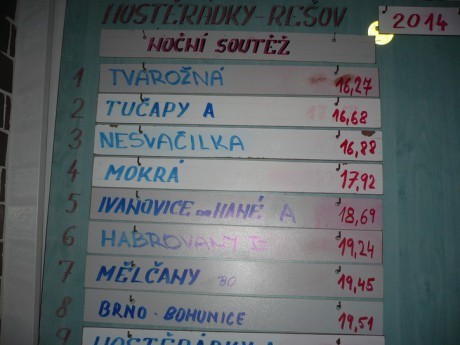 HOSTĚRÁDKY-REŠOV
2014
NOČNÍ SOUTĚŽ
1 TVAROŽNÁ 16,27
2 TUČAPY A 16,68
3 NESVAČILKA 16,88
4 MOKRÁ 17,92
5 IVANOVICE na HANÉ A 18,69
6 HABROVANY 19,24
7 MĚLČANY 19,45
8 BRNO - BOHUNICE 19,51
9 HOSTĚRÁDKY